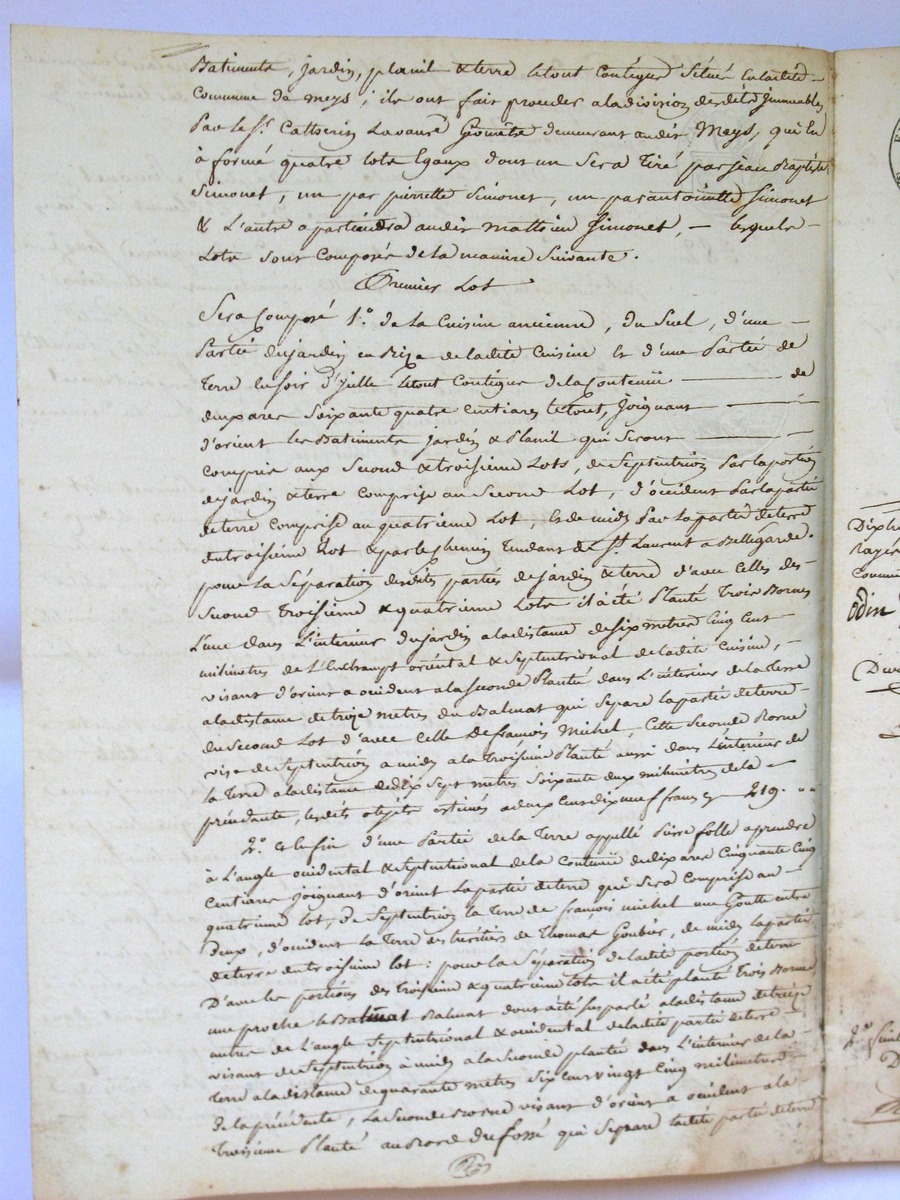 Batiments, jardin, planil & terre letout Contigus Situés En ladite
Commune de meys; ils ont fait proceder ala division desdits Immeubles
Par le Sr. Catherin Lavaure Géomètre demeurant audit Meys, qui En
à formé quatre lots Egaux dont un Sera Tiré par jean Baptiste
Simonet, un par pierrette Simonet, un par antoinette Simonet
& L'autre apartiendra audit mathieu Simonet, lesquels
Lots sont Composés de la maniere Suivante.
Premier Lot
Sera Composé 1.º de La Cuisine ancienne, du Suel, d'une
Partie du jardin en Bize de ladite Cuisine & d'une Partie de
Terre letout Contigus de la Contenue de
deux ares Soixante quatre Centiares letout, Joignant
d'orient les Batiments jardin & Planil qui Seront
Compris aux Second & troisieme Lots, de Septentrion Par la portion
de jardin & terre Comprise au Second Lot, d'occident Par la partie
de terre Comprise au quatrieme Lot, & de midi Par La partie de terre
du troisieme Lot & par le chemin Tendant de St. Laurent a Bellegarde.
pour La Séparation desdites parties de jardin & terre d'avec Celles des
Second Troisieme & quatrieme Lots il à été Planté Trois Bornes
L'une dans L'interieur du jardin a la distance de six metres Cinq Cent
milimetres de L'Enchampt oriental & Septentrional de ladite Cuisine,
visant d'orient a occident a la Seconde Planté dans L'interieur de la Terre
a la distance de treize metres du Balmat qui Sépare la partie de terre
du Second Lot d'avec Celle de francois Michel, Cette Seconde Borne
vise de Septentrion a midi a la Troisieme Planté aussi dans L'interieur de
la Terre a la distance de dix Sept metres Soixante deux milimetres de la
précédente, lesdits objets estimés a deux Cens dix neuf francs cy 219.
2.º Et Enfin d'une Partie de la Terre appellé Pierre folle a prendre
à L'angle occidental & Septentrional de la Contenue de dix ares Cinquante Cinq
Centiares joignant d'orient La partie de terre qui Sera Comprise au
quatrieme lot, de Septentrion la Terre de francois michel une Goutte entre
deux, d'occident La Terre des heritiers de Thomas Goubier, de midi la partie
de terre du troisieme lot: pour la Séparation de ladite portion de terre
D'avec les portions des Troisieme & quatrieme lots il a été planté Trois Bornes
une proche le Balmat dont a été Susparlé a la distance de treize
metres de L'angle Septentrional & occidental de ladite partie de terre
visant de Septentrion à midi a la Seconde plantée dans L'interieur de la
Terre a la distance de quarante metres Six cens vingt Cinq milimetres
de la précédente, La Seconde Borne visant d'orient a occident a la
Troisieme Planté au Bord du fossé qui Sépare ladite partie de terre
Rayé
Commu
Odin
D